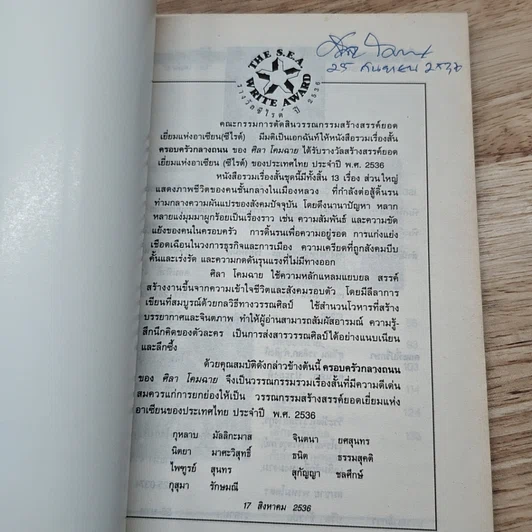 THE S.E.A.
WRITE AWARD
รางวัลซีไรต์ ปี 2536
25 กันยายน 2536
คณะกรรมการตัดสินวรรณกรรมสร้างสรรค์ยอด
เยี่ยมแห่งอาเซียน (ซีไรต์) มีมติเป็นเอกฉันท์ให้หนังสือรวมเรื่องสั้น
ครอบครัวกลางถนน ของ ศิลา โคมฉาย ได้รับรางวัลสร้างสรรค์ยอด
เยี่ยมแห่งอาเซียน (ซีไรต์) ของประเทศไทย ประจำปี พ.ศ. 2536
หนังสือรวมเรื่องสั้นชุดนี้มีทั้งสิ้น 13 เรื่อง ส่วนใหญ่
แสดงภาพชีวิตของคนชั้นกลางในเมืองหลวง ที่กำลังต่อสู้ดิ้นรน
ท่ามกลางความผันแปรของสังคมปัจจุบัน โดยดึงนานาปัญหา หลาก
หลายแง่มุมมาผูกร้อยเป็นเรื่องราว เช่น ความสัมพันธ์ และความขัด
แย้งของคนในครอบครัว การดิ้นรนเพื่อความอยู่รอด การแก่งแย่ง
เชือดเฉือนในวงการธุรกิจและการเมือง ความเครียดที่ถูกสังคมบีบ
คั้นและเร่งรัด และความกดดันรุนแรงที่ไม่มีทางออก
ศิลา โคมฉาย ใช้ความหลักแหลมแยบยล สรรค์
สร้างงานขึ้นจากความเข้าใจชีวิตและสังคมรอบตัว โดยมีลีลาการ
เขียนที่สมบูรณ์ด้วยกลวิธีทางวรรณศิลป์ ใช้สำนวนโวหารที่สร้าง
บรรยากาศและจินตภาพ ทำให้ผู้อ่านสามารถสัมผัสอารมณ์ ความรู้-
สึกนึกคิดของตัวละคร เป็นการส่งสารวรรณศิลป์ได้อย่างแนบเนียน
และลึกซึ้ง
ด้วยคุณสมบัติดังกล่าวข้างต้นนี้ ครอบครัวกลางถนน
ของ ศิลา โคมฉาย จึงเป็นวรรณกรรมรวมเรื่องสั้นที่มีความดีเด่น
สมควรแก่การยกย่องให้เป็น วรรณกรรมสร้างสรรค์ยอดเยี่ยมแห่ง
อาเซียนของประเทศไทย ประจำปี พ.ศ. 2536
กุหลาบ มัลลิกะมาส จินตนา ยศสุนทร
นิตยา มาศะวิสุทธิ์ ธนิต ธรรมสุคติ
ไพฑูรย์ สุนทร สุกัญญา ชลศึกษ์
กุสุมา รักษมณี
17 สิงหาคม 2536